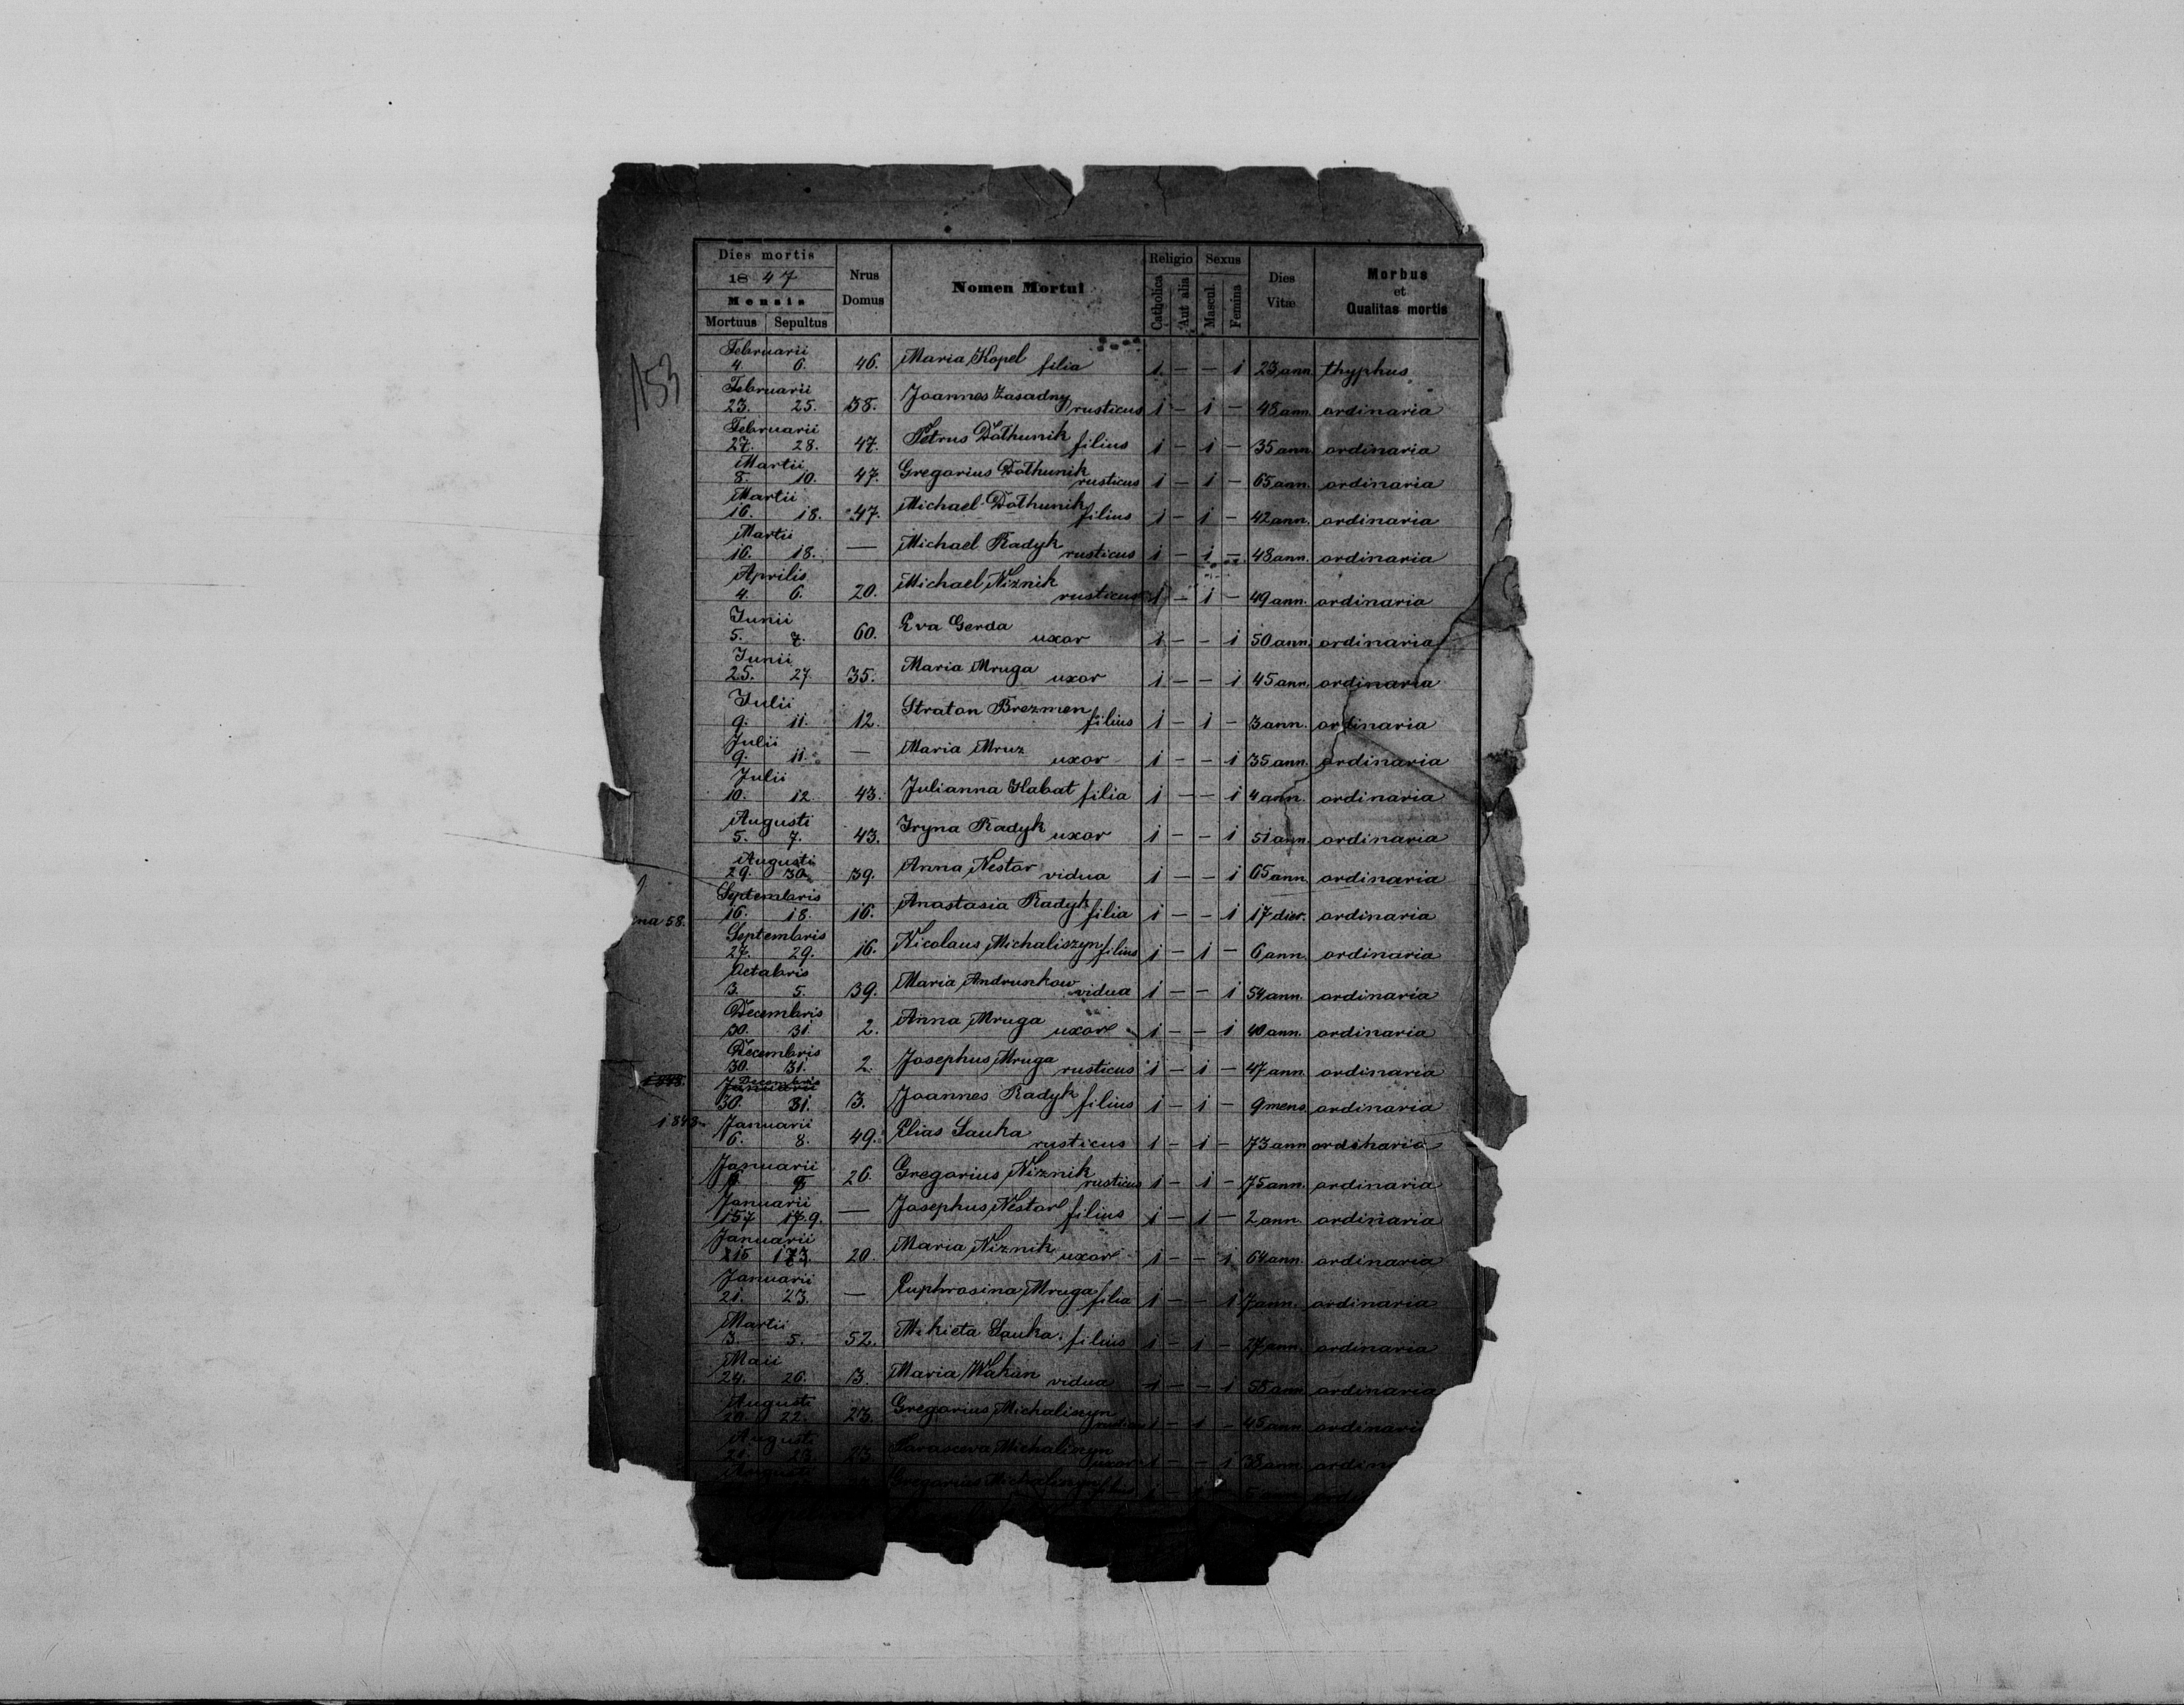 Dies mortis
1847
Mensis
Mortuus Sepultus
Nrus Domus
Nomen Mortui
Religio
Catholica
Aut alia
Sexus
Mascul.
Femina
Dies Vitæ
Morbus et Qualitas mortis
153
Februarii
4. 6. 46. Maria Kopel filia 1. – – 1 23 ann. thyphus
Februarii
23. 25. 38. Joannes Zasadny rusticus 1 – 1 – 48 ann. ordinaria
Februarii
27. 28. 47. Petrus Dothunik filius 1 – 1 – 35 ann. ordinaria
Martii
8. 10. 47. Gregorius Dothunik rusticus 1 – 1 – 65 ann. ordinaria
Martii
16. 18. 47. Michael Dothunik filius 1 – 1 – 42 ann. ordinaria
Martii
16. 18. — Michael Radyk rusticus 1 – 1 – 48 ann. ordinaria
Aprilis
4. 6. 20. Michael Niznik rusticus 1 – 1 – 49 ann. ordinaria
Junii
5. 7. 60. Eva Gerda uxor 1 – – 1 50 ann. ordinaria
Junii
25. 27. 35. Maria Mruga uxor 1 – – 1 45 ann. ordinaria
Julii
9. 11. 12. Straton Brezmen filius 1 – 1 – 3 ann. ordinaria
Julii
9. 11. — Maria Mruz uxor 1 – – 1 35 ann. ordinaria
Julii
10. 12. 43. Julianna Habat filia 1 – – 1 4 ann. ordinaria
Augusti
5. 7. 43. Iryna Radyk uxor 1 – – 1 51 ann. ordinaria
Augusti
29. 30. 39. Anna Nestor vidua 1 – – 1 65 ann. ordinaria
Septembris
na 58. 16. 18. 16. Anastasia Radyk filia 1 – – 1 17 dier. ordinaria
Septembris
27. 29. 16. Nicolaus Michaliszyn filius 1 – 1 – 6 ann. ordinaria
Octobris
3. 5. 39. Maria Andruszkow vidua 1 – – 1 54 ann. ordinaria
Decembris
30. 31. 2. Anna Mruga uxor 1 – – 1 40 ann. ordinaria
Decembris
30. 31. 2. Josephus Mruga rusticus 1 – 1 – 47 ann. ordinaria
1848. Januarii Decembris
30. 31. 3. Joannes Radyk filius 1 – 1 – 9 mens. ordinaria
1848 Januarii
6. 8. 49. Elias Sauka rusticus 1 – 1 – 73 ann. ordinaria
Januarii
26. Gregorius Niznik rusticus 1 – 1 – 75 ann. ordinaria
Januarii
— Josephus Nestor filius 1 – 1 – 2 ann. ordinaria
Januarii
20. Maria Niznik uxor 1 – – 1 64 ann. ordinaria
Januarii
21. 23. — Euphrosina Mruga filia 1 – – 1 7 ann. ordinaria
Martii
3. 5. 52. Mikieta Sauka filius 1 – 1 – 27 ann. ordinaria
Maii
24. 26. 3. Maria Wakan vidua 1 – – 1 55 ann. ordinaria
Augusti
20. 22. 23. Gregorius Michaliszyn 1 – 1 – 45 ann. ordinari
Augusti
21. 23. 23. Parasceva Michaliszyn uxor 1 – – 1 38 ann. ordin
Augusti
Gregorius Michaliszyn